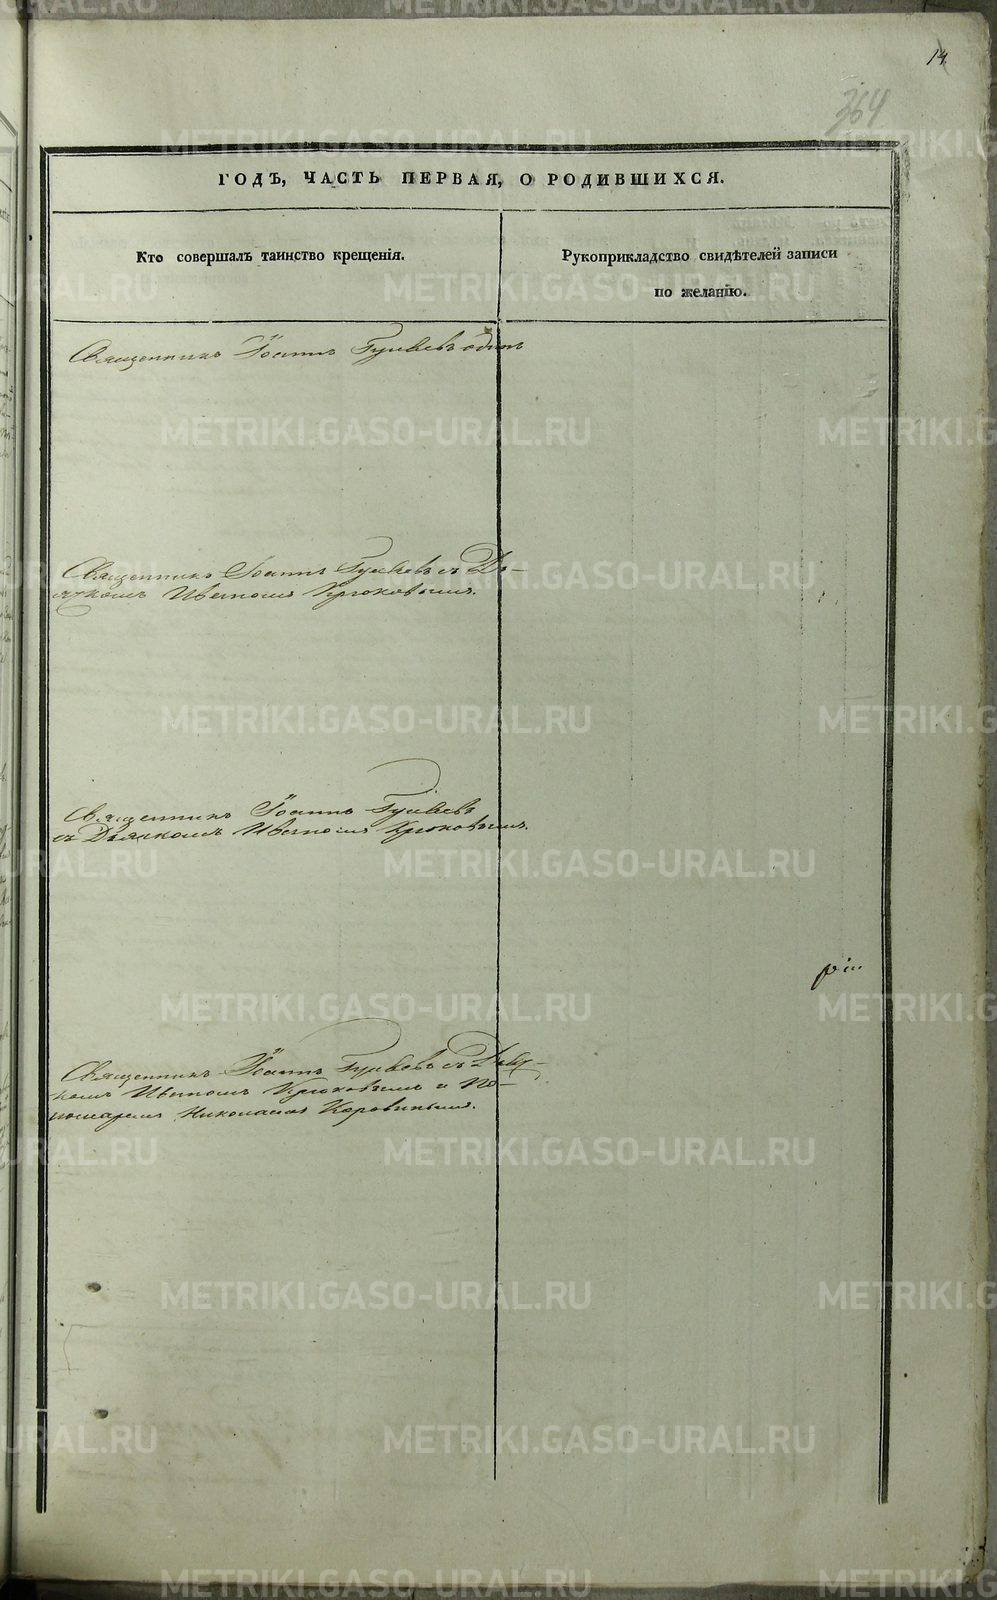 14
364
ГОДЪ, ЧАСТЬ ПЕРВАЯ, О РОДИВШИХСЯ.
Кто совершалъ таинство крещенія.
Рукоприкладство свидѣтелей записи
по желанію.
Священникъ Іоаннъ Гуляевъ одинъ
Священникъ Іоаннъ Гуляевъ съ Дья-
чкомъ Иваномъ Крюковымъ.
Священникъ Іоаннъ Гуляевъ
съ Дьячкомъ Иваномъ Крюковымъ.
Священникъ Іоаннъ Гуляевъ съ Дьяч-
комъ Иваномъ Крюковымъ и По-
номаремъ Николаемъ Коровинымъ.
METRIKI.GASO-URAL.RU